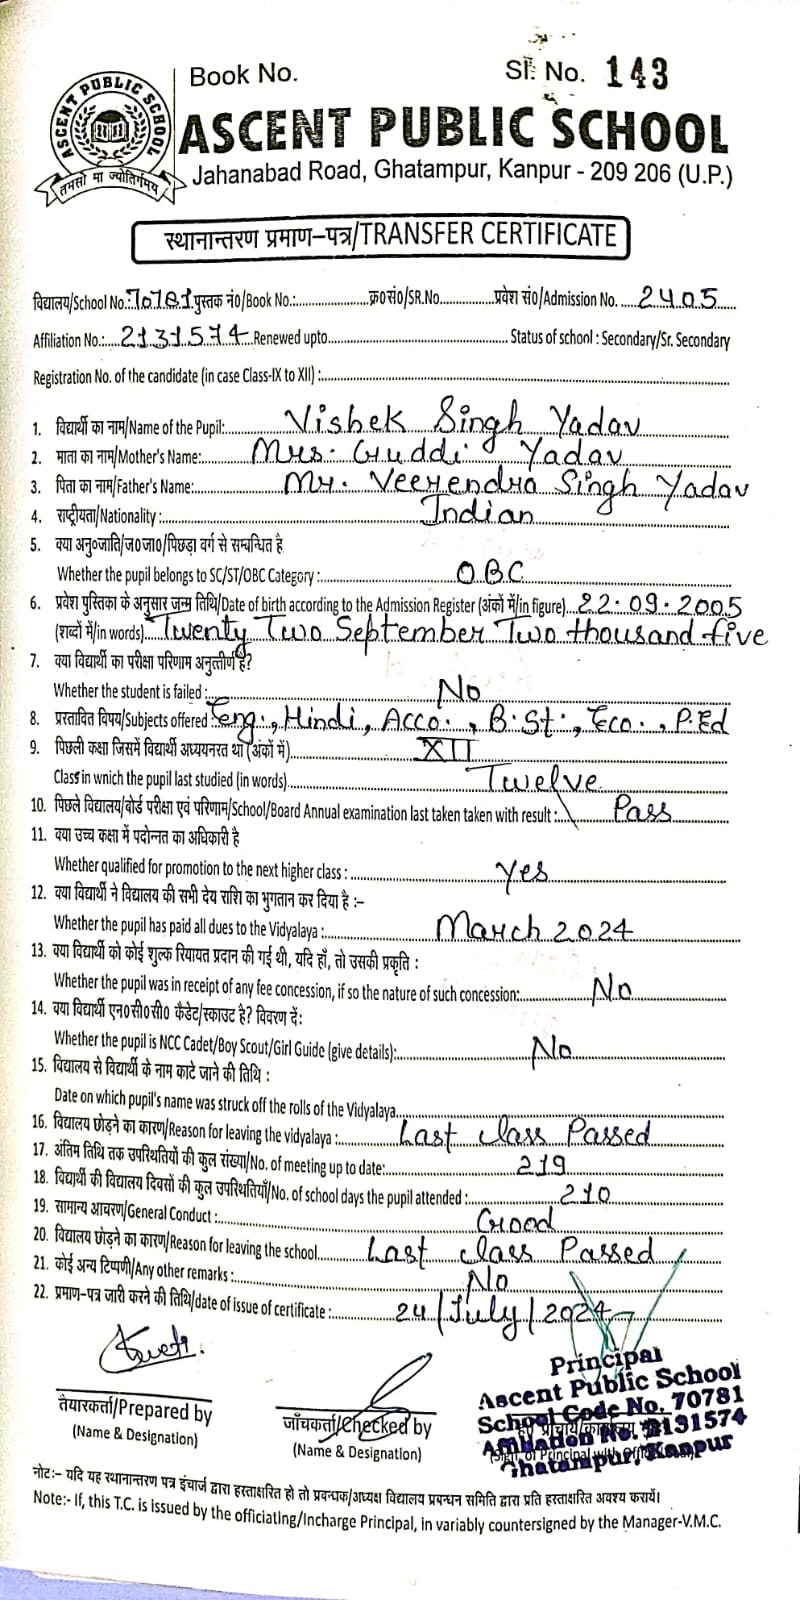 Book No.
Sl. No. 143
ASCENT PUBLIC SCHOOL
तमसो मा ज्योतिर्गमय
ASCENT PUBLIC SCHOOL
Jahanabad Road, Ghatampur, Kanpur - 209 206 (U.P.)
स्थानान्तरण प्रमाण-पत्र/TRANSFER CERTIFICATE
विद्यालय/School No.: 70781 पुस्तक नं०/Book No.: क्र०सं०/SR.No. प्रवेश सं०/Admission No. 2405
Affiliation No.: 2131574 Renewed upto Status of school : Secondary/Sr. Secondary
Registration No. of the candidate (in case Class-IX to XII) :
1. विद्यार्थी का नाम/Name of the Pupil: Vishek Singh Yadav
2. माता का नाम/Mother's Name: Mrs. Guddi Yadav
3. पिता का नाम/Father's Name: Mr. Veerendra Singh Yadav
4. राष्ट्रीयता/Nationality : Indian
5. क्या अनु०जाति/ज०जा०/पिछड़ा वर्ग से सम्बन्धित है
Whether the pupil belongs to SC/ST/OBC Category : OBC
6. प्रवेश पुस्तिका के अनुसार जन्म तिथि/Date of birth according to the Admission Register (अंकों में/in figure) 22.09.2005
(शब्दों में/in words) Twenty Two September Two thousand five
7. क्या विद्यार्थी का परीक्षा परिणाम अनुत्तीर्ण है?
Whether the student is failed : No
8. प्रस्तावित विषय/Subjects offered : Eng., Hindi, Acco., B.St., Eco., P.Ed
9. पिछली कक्षा जिसमें विद्यार्थी अध्ययनरत था (अंकों में) XII
Class in wnich the pupil last studied (in words) Twelve
10. पिछले विद्यालय/बोर्ड परीक्षा एवं परिणाम/School/Board Annual examination last taken taken with result : Pass
11. क्या उच्च कक्षा में पदोन्नत का अधिकारी है
Whether qualified for promotion to the next higher class : Yes
12. क्या विद्यार्थी ने विद्यालय की सभी देय राशि का भुगतान कर दिया है :-
Whether the pupil has paid all dues to the Vidyalaya : March 2024
13. क्या विद्यार्थी को कोई शुल्क रियायत प्रदान की गई थी, यदि हाँ, तो उसकी प्रकृति :
Whether the pupil was in receipt of any fee concession, if so the nature of such concession: No
14. क्या विद्यार्थी एन०सी०सी० कैडेट/स्काउट है? विवरण दें:
Whether the pupil is NCC Cadet/Boy Scout/Girl Guide (give details): No
15. विद्यालय से विद्यार्थी के नाम काटे जाने की तिथि :
Date on which pupil's name was struck off the rolls of the Vidyalaya
16. विद्यालय छोड़ने का कारण/Reason for leaving the vidyalaya : Last Class Passed
17. अंतिम तिथि तक उपस्थितियों की कुल संख्या/No. of meeting up to date: 219
18. विद्यार्थी की विद्यालय दिवसों की कुल उपस्थितियाँ/No. of school days the pupil attended : 210
19. सामान्य आचरण/General Conduct : Good
20. विद्यालय छोड़ने का कारण/Reason for leaving the school Last class Passed
21. कोई अन्य टिप्पणी/Any other remarks : No
22. प्रमाण-पत्र जारी करने की तिथि/date of issue of certificate : 24/July/2024
तैयारकर्ता/Prepared by
(Name & Designation)
जाँचकर्ता/Checked by
(Name & Designation)
Principal
Ascent Public School
School Code No. 70781
Affiliation No. 2131574
Ghatampur, Kanpur
नोट:- यदि यह स्थानान्तरण पत्र इंचार्ज द्वारा हस्ताक्षरित हो तो प्रबन्धक/अध्यक्ष विद्यालय प्रबन्धन समिति द्वारा प्रति हस्ताक्षरित अवश्य करायें।
Note:- If, this T.C. is issued by the officiating/Incharge Principal, in variably countersigned by the Manager-V.M.C.